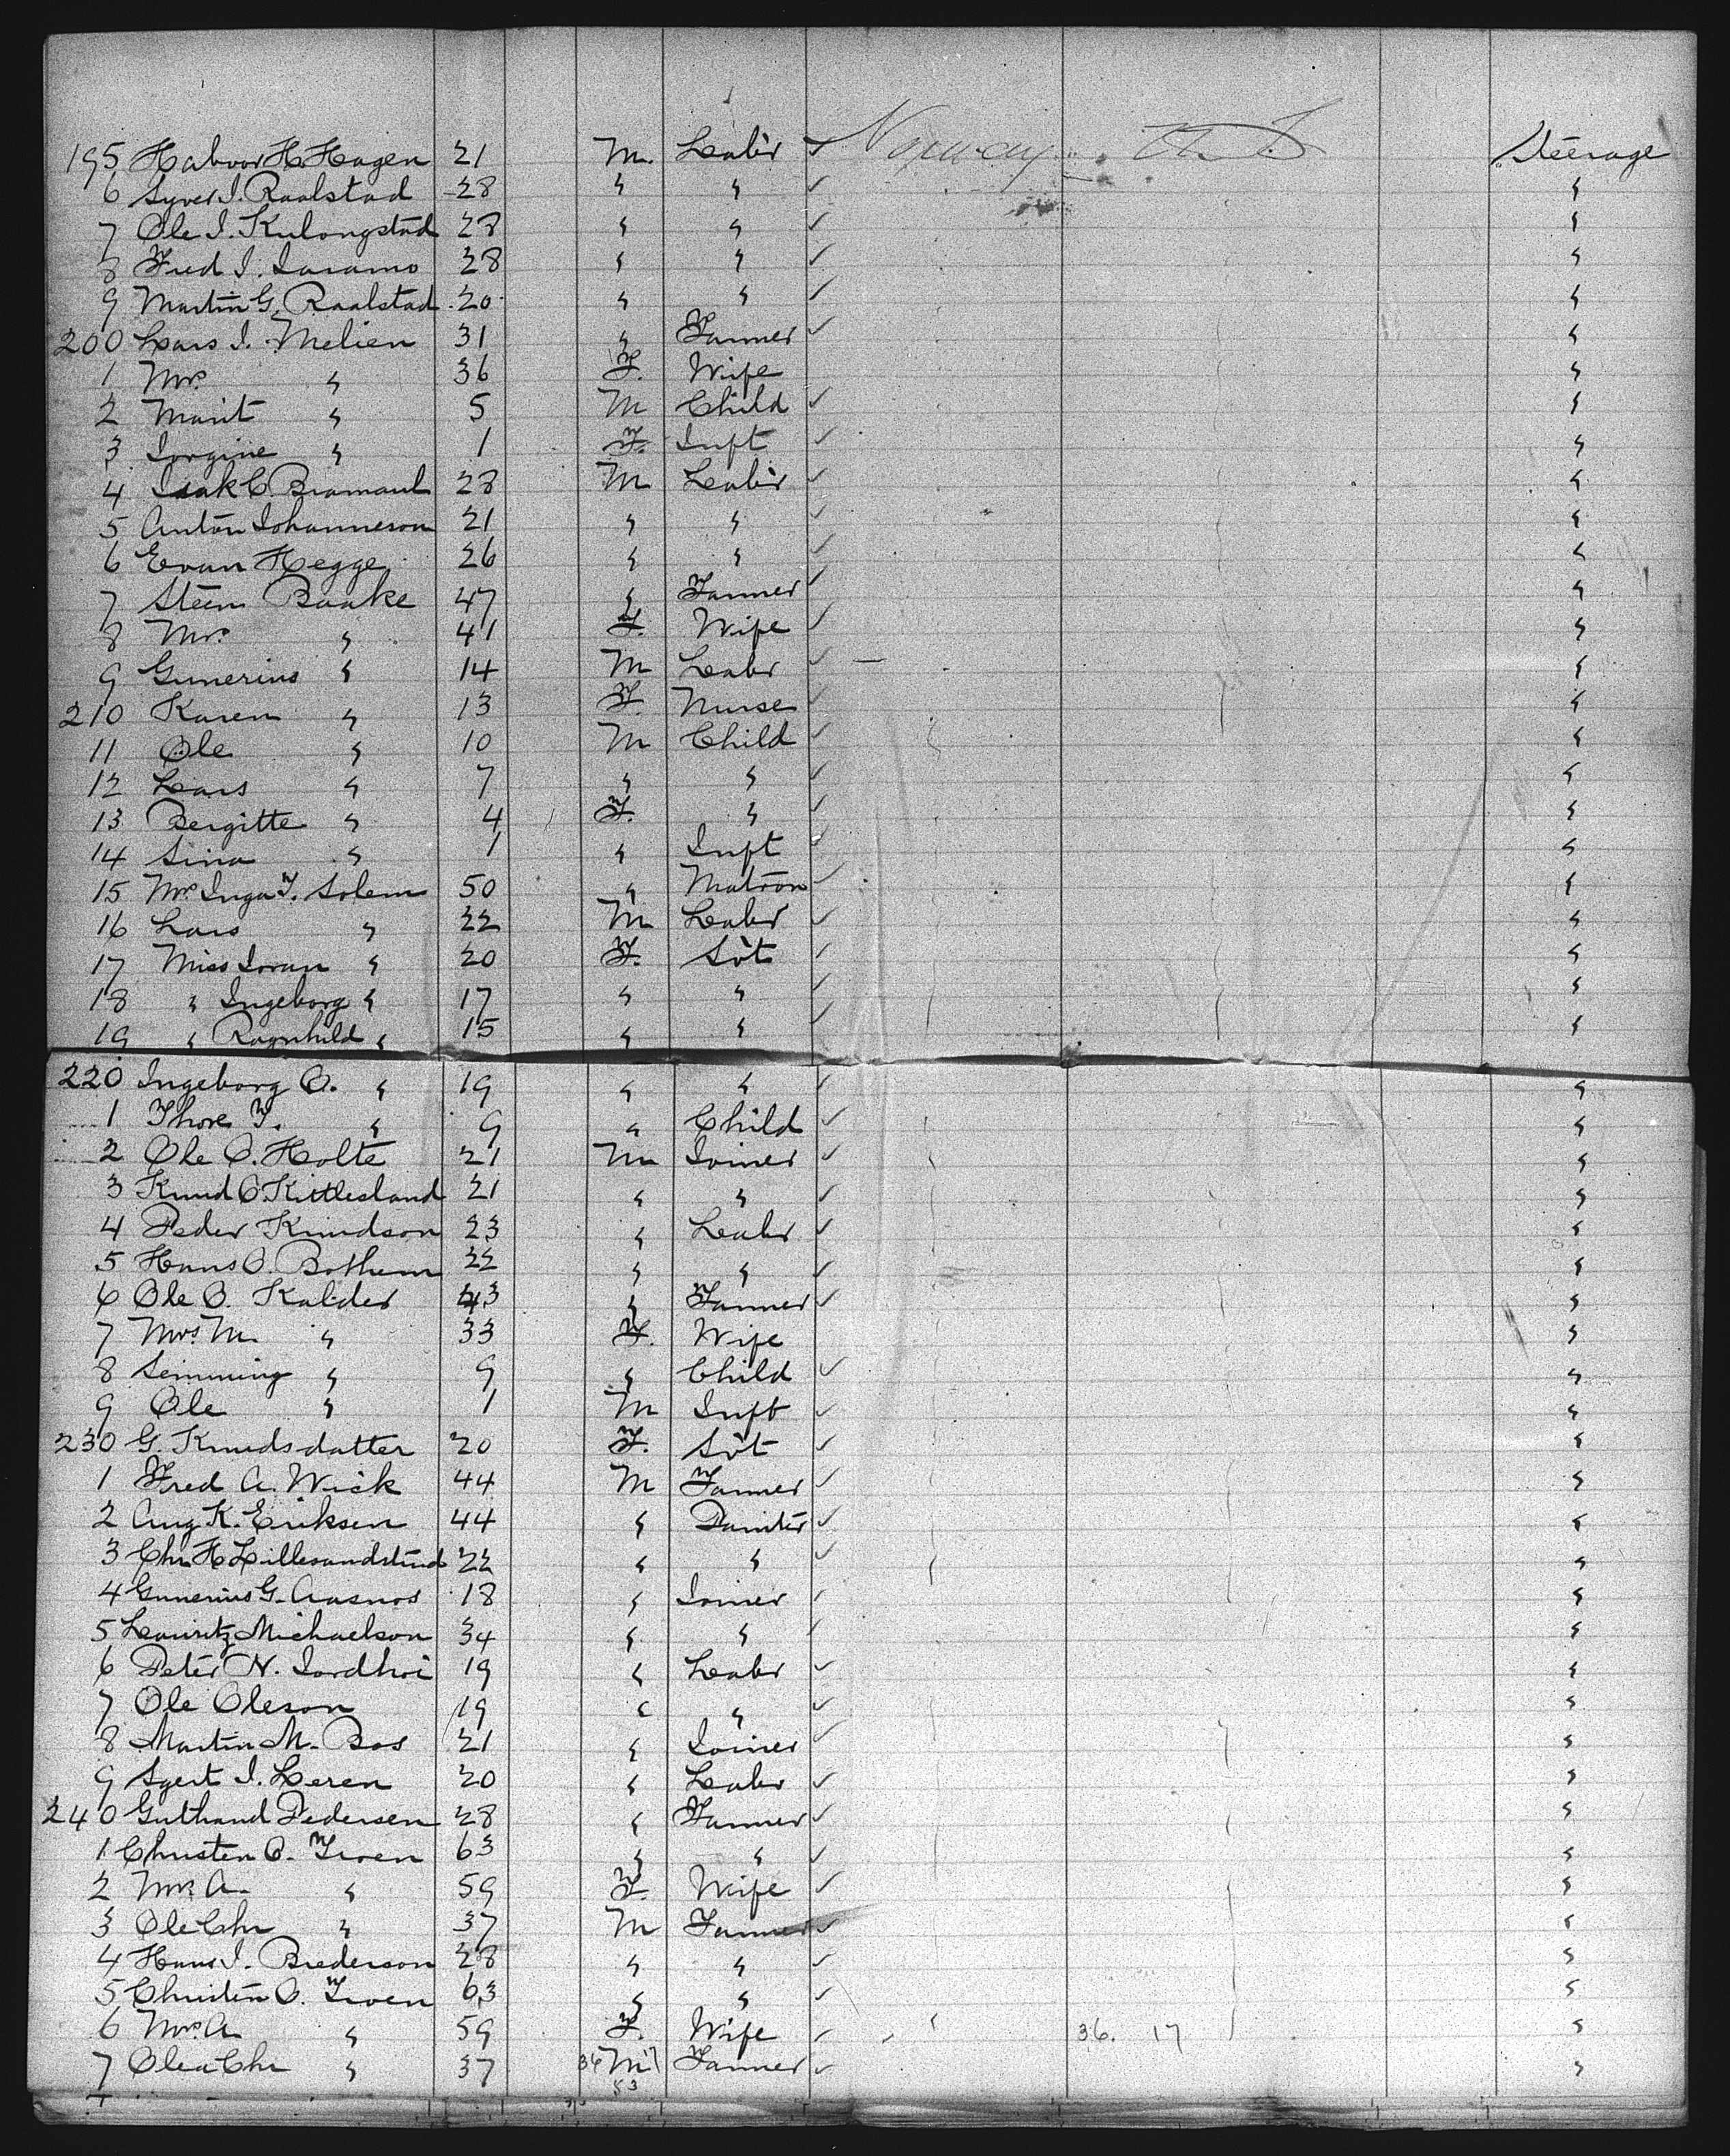 195 Halvor H. Hagen 21 M. Labr ✓ Norway U.S. Steerage
6 Syver I. Raalstad 28 " " ✓ "
7 Ole I. Kulongstad 28 " " ✓ "
8 Fred I. Laramo 28 " " ✓ "
9 Martin G. Raalstad 20 " " ✓ "
200 Lars I. Melien 31 " Farmer ✓ "
1 Mrs. " 36 F. Wife "
2 Marit " 5 M Child ✓ "
3 Iorgine " 1 F. Inft ✓ "
4 Isak C. 28 M Labr ✓ "
5 Anton Iohanneson 21 " " ✓ "
6 Evan Hegge 26 " " ✓ "
7 Steen Baake 47 " Farmer ✓ "
8 Mrs. " 41 F. Wife ✓ "
9 Gunerius " 14 M Labr ✓ "
210 Karen " 13 F. Nurse ✓ "
11 Ole " 10 M Child ✓ "
12 Lars " 7 " " ✓ "
13 Bergitte " 4 F. " ✓ "
14 Sina " 1 " Inft ✓ "
15 Mrs. Inga T. Solem 50 " Matron ✓ "
16 Lars " 22 M Labr ✓ "
17 Miss Ioran " 20 F. Svt ✓ "
18 " Ingeborg " 17 " " ✓ "
19 " Ragnhild " 15 " " ✓ "
220 Ingeborg O. " 19 " " ✓ "
1 Thore T. " 9 " Child ✓ "
2 Ole O. Holte 21 M Ioiner ✓ "
3 Knud O. Kittlesland 21 " " ✓ "
4 Peder Knudson 23 " Labr ✓ "
5 Hans O. Bothem 22 " " ✓ "
6 Ole O. Kalder 43 " Farmer ✓ "
7 Mrs. M. " 33 F. Wife "
8 Semming " 9 " Child ✓ "
9 Ole " 1 M Inft ✓ "
230 G. Knudsdatter 20 F. Svt ✓ "
1 Fred A. Wick 44 M Farmer ✓ "
2 Aug K. Eriksen 44 " Painter ✓ "
3 Chr. H. 22 " " ✓ "
4 Gunerius G. Aasnos 18 " Ioiner ✓ "
5 Lauritz Michaelson 34 " " ✓ "
6 Peter N. Iordhoi 19 " Labr ✓ "
7 Ole Oleson 19 " " ✓ "
8 Martin M. Bos 21 " Ioiner ✓ "
9 I. Leren 20 " Labr ✓ "
240 Guthand Pedersen 28 " Farmer ✓ "
1 Christen O. Troen 63 " " ✓ "
2 Mrs. A. " 59 F. Wife ✓ "
3 Ole Chr " 37 M Farmer ✓ "
4 Hans I. Brederson 28 " " ✓ "
5 Christen O. Troen 63 " " ✓ "
6 Mrs. A " 59 F. Wife ✓ " 36. 17 "
7 Ole Chr " 37 36 M 17 Farmer ✓ "
53